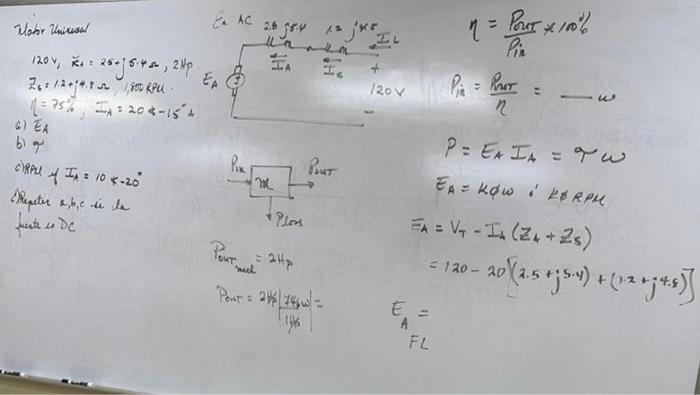 Motor Universal
120 V, Z_A = 2.5 + j 5.4 Ω, 2 Hp
Z_s = 1.2 + j 4.8 Ω, 1,800 RPM
η = 75%, I_A = 20 ∠-15° A
a) E_A
b) τ
c) RPM if I_A = 10 ∠-20°
d) Repetir a, b, c si la
fuente es DC
En AC
2.5 j5.4 1.2 j4.8
I_L
I_A I_s
E_A
+
120 V
-
P_in m P_out
P_loss
P_out mec = 2 Hp
P_out = 2 Hp | 746 W / 1 Hp | =
η = P_out / P_in × 100%
P_in = P_out / η = ___ W
P = E_A I_A = τ ω
E_A = KØω ó KØ RPM
E_A = V_T - I_A (Z_A + Z_s)
= 120 - 20 [(2.5 + j5.4) + (1.2 + j4.8)]
E_A =
FL